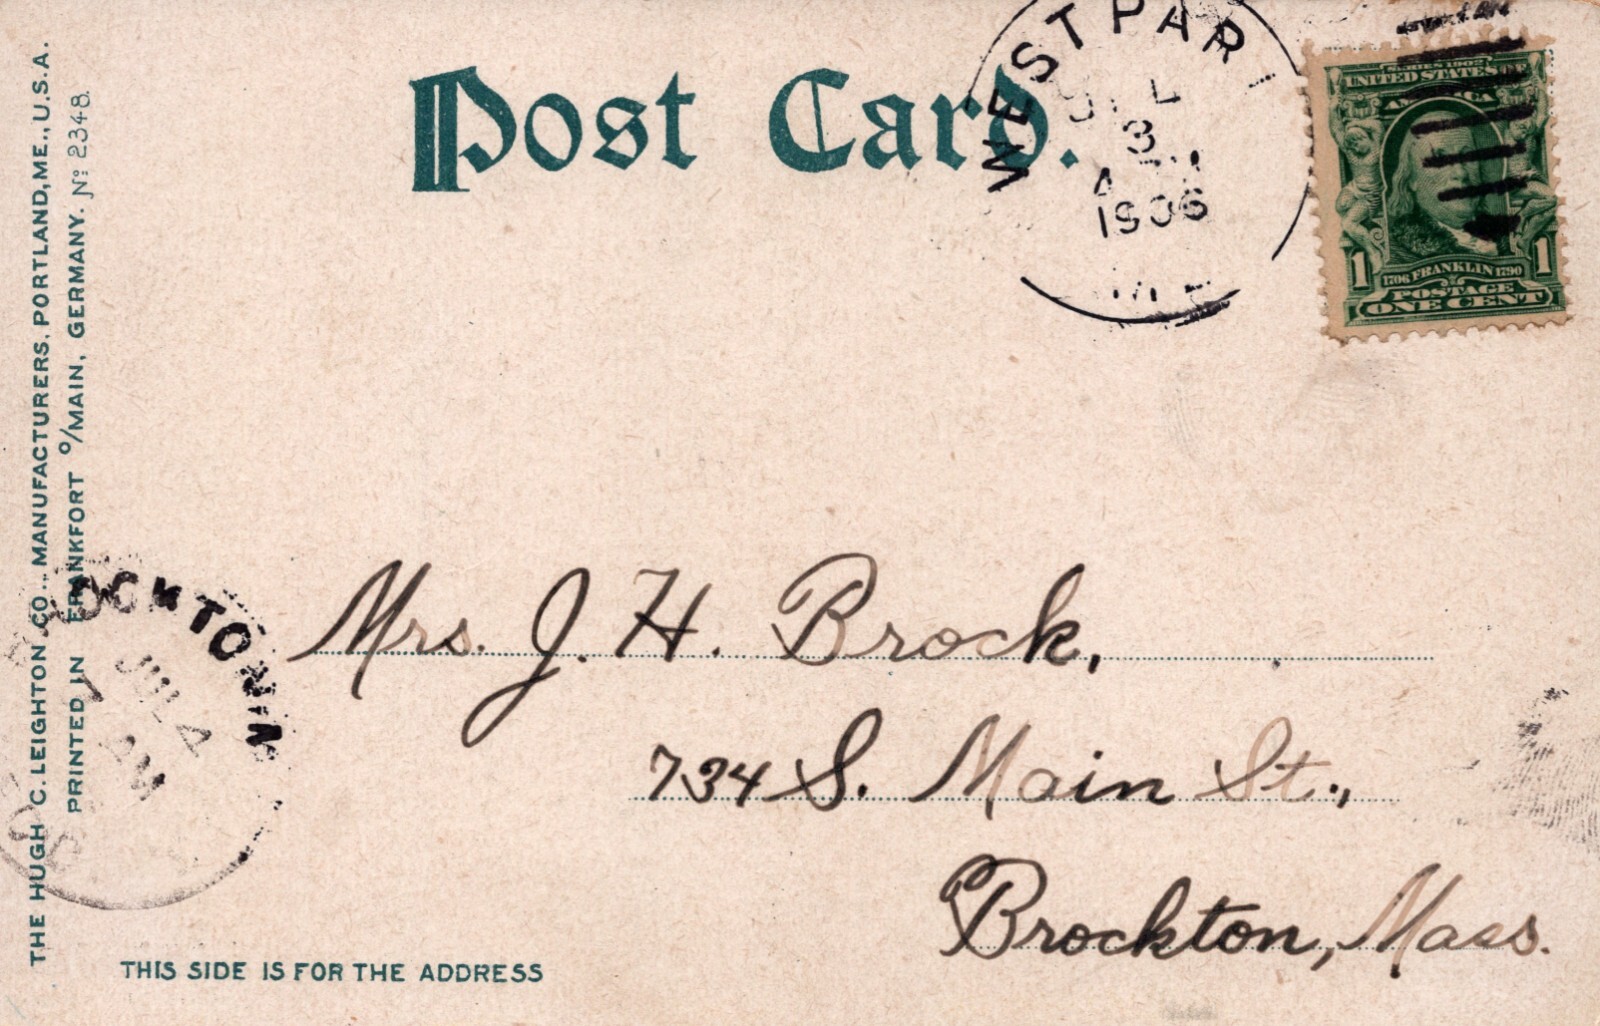 Post Card.
WEST PAR
3
1906
ME
SERIES 1902
UNITED STATES OF
AMERICA
1706 FRANKLIN 1790
1 1
POSTAGE
ONE CENT
THE HUGH C. LEIGHTON CO., MANUFACTURERS, PORTLAND, ME., U.S.A.
PRINTED IN FRANKFORT o/MAIN, GERMANY. No 2348.
BROCKTON
JUL 4
AM
Mrs. J. H. Brock,
734 S. Main St.,
Brockton, Mass.
THIS SIDE IS FOR THE ADDRESS